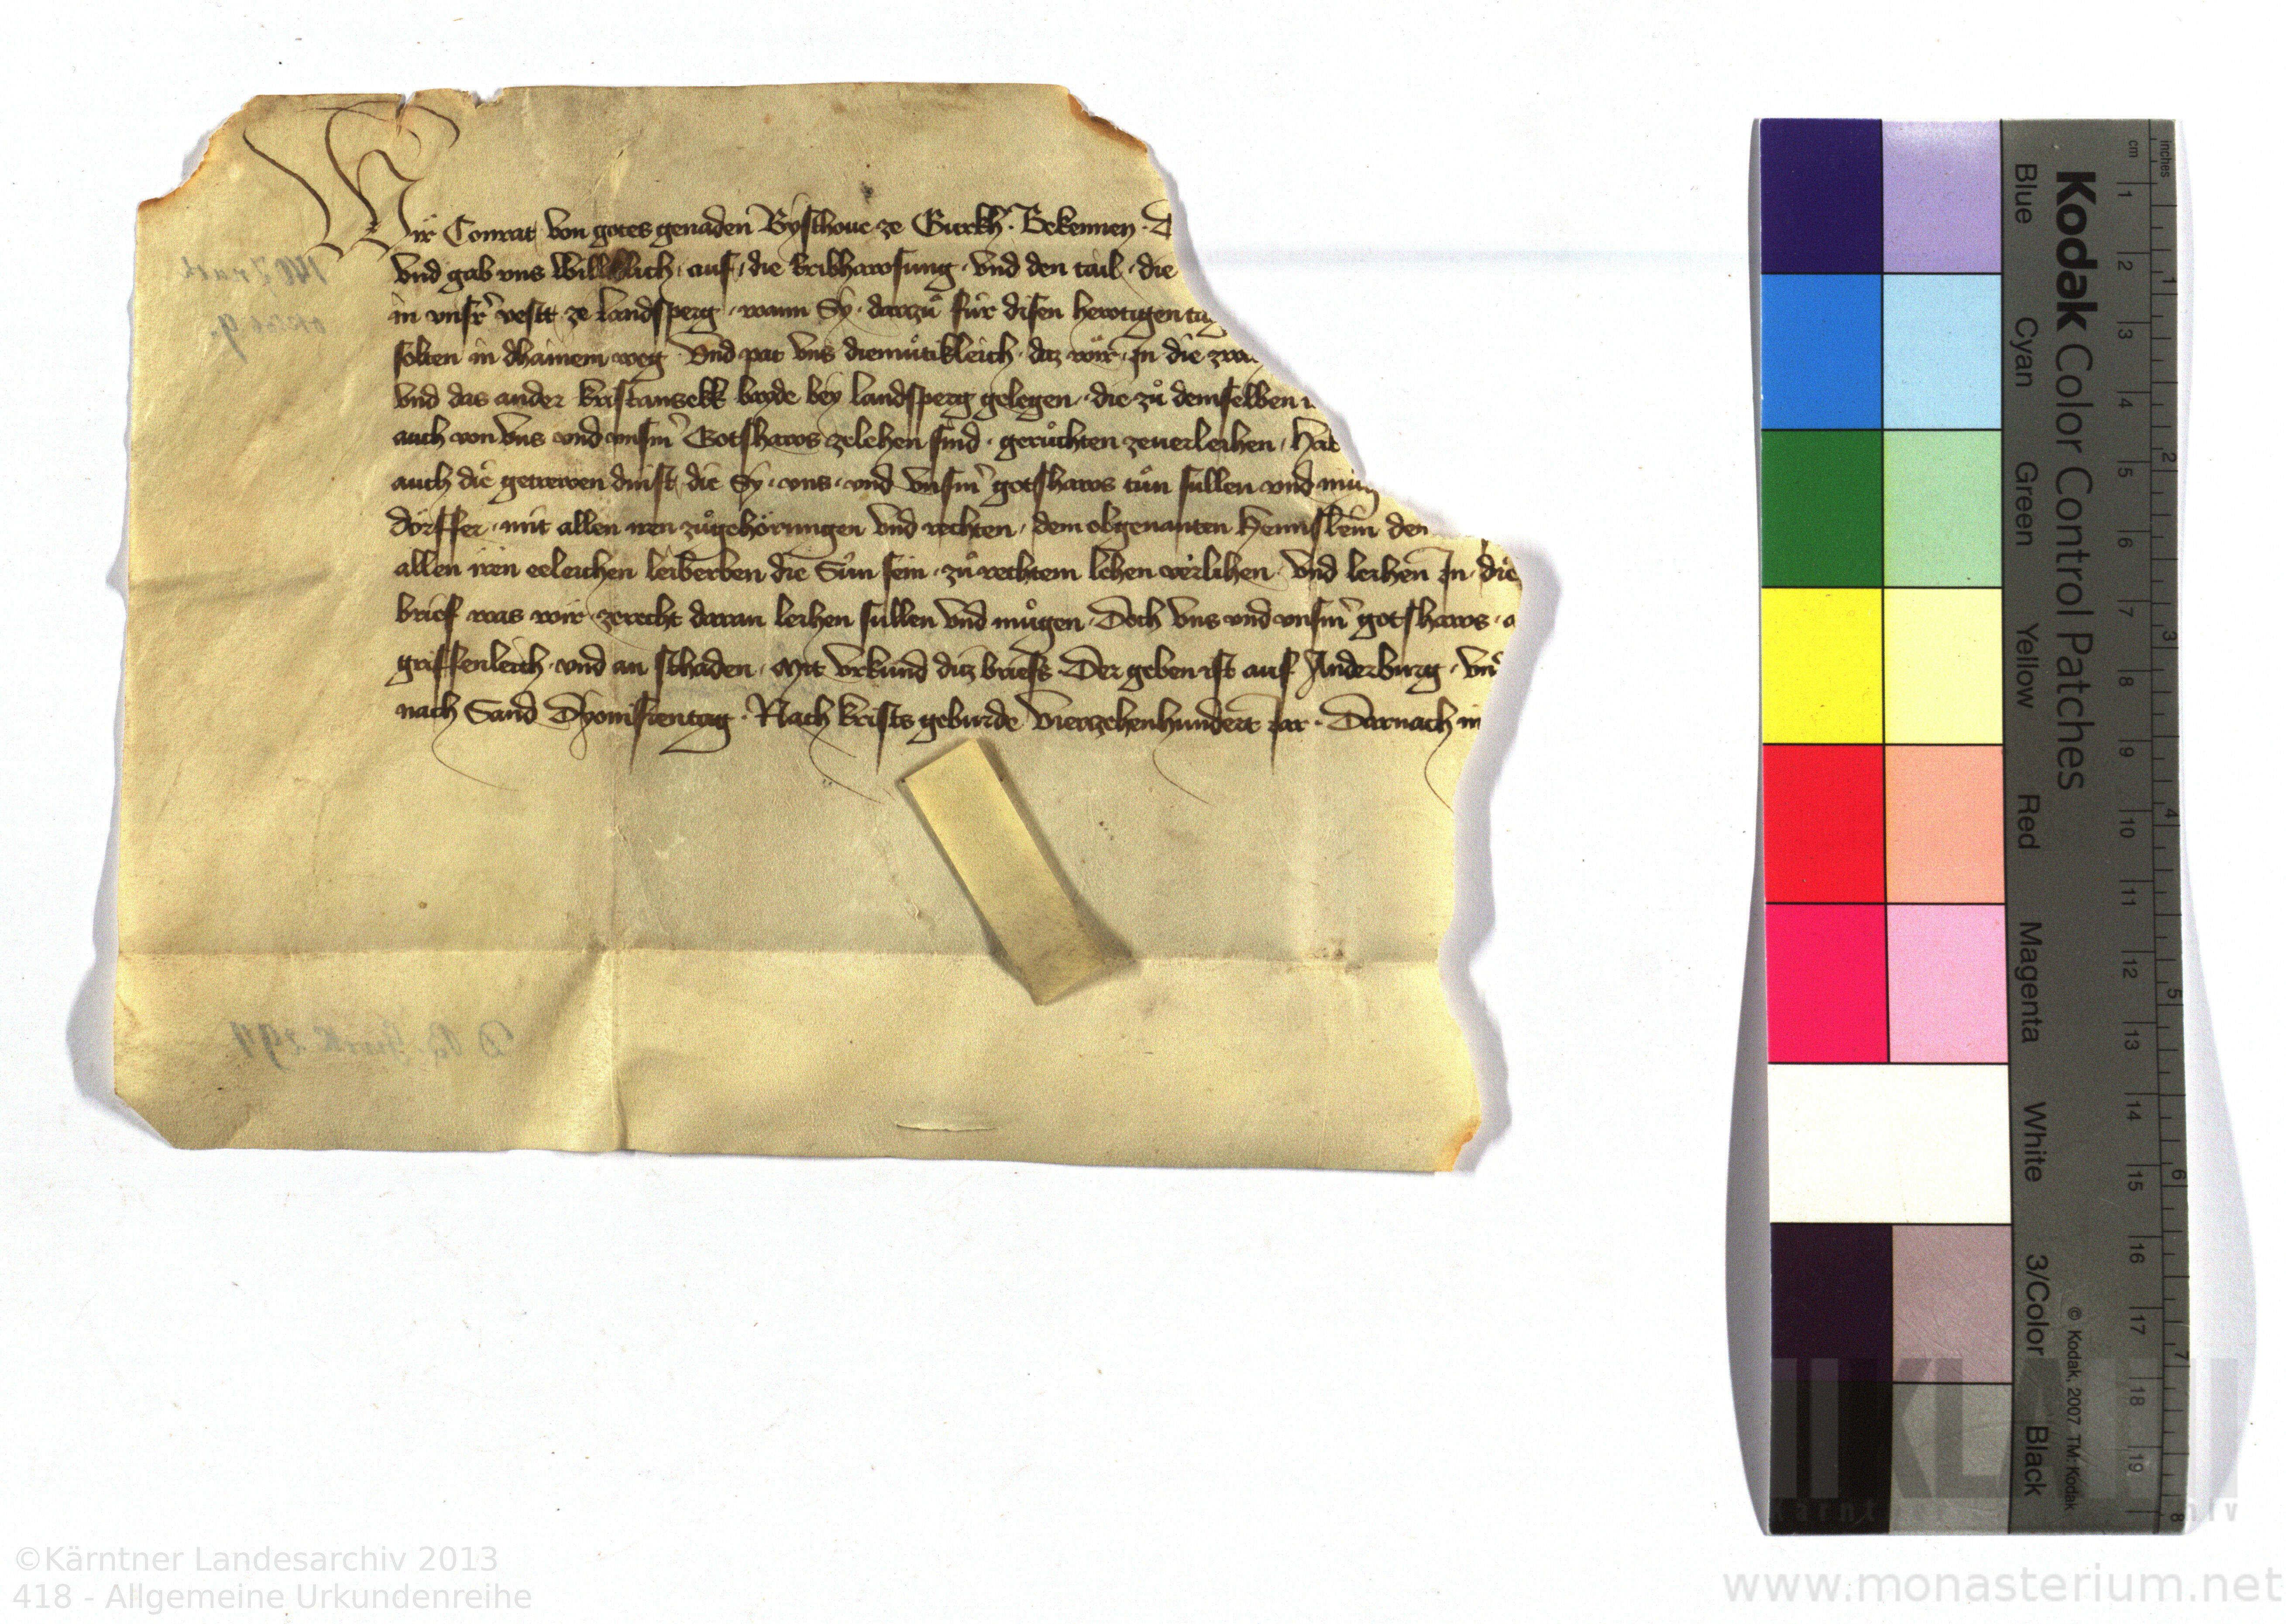 Wir Conrat von gotes genaden Bysthoue ze Gurkh. Bekennen. D
vnd gab vns willklich, auf, die kribhawsung. vnd den tail. die
in vnsr̄ vestt ze landsperg. wann Sy. darzů für disen hewtigen tag
solten in dhainem weg. Vnd pat vns diemůtikleich. daz wir. In die
vnd das ander kristansekk bayde bey landsperg gelegen. die zů demselben
auch von vns vnd vnsm̄ Gotshaws zelehen sind. gerůchten zeuerleihen. hat
auch die getrewen dinst, die Sy. vns. vnd vnsm̄ gotshaws tůn sullen vnd
dörffer. mit allen iren zůgehörungen vnd rechten. dem obgenanten Hennslein den
allen iren eeleichen leiberben die Sün sein. zů rechtem lehen verlihen. vnd leihen In. die
brief was wir. zerecht daran leihen sullen vnd mügen. Doch vns vnd vnsm̄ gotshaws.
griffenleich. vnd an schaden. Mit vrkund ditz briefs. Der geben ist auf Anderburg.
nach Sand Dyonisientag. Nach krists geburde vierzehenhundert Jar. Darnach in
Kodak Color Control Patches
Blue Cyan Green Yellow Red Magenta White 3/Color Black
© Kodak, 2007 TM: Kodak
cm 1 2 3 4 5 6 7 8 9 10 11 12 13 14 15 16 17 18 19
inches 1 2 3 4 5 6 7 8
KLA
©Kärntner Landesarchiv 2013
418 - Allgemeine Urkundenreihe
www.monasterium.net